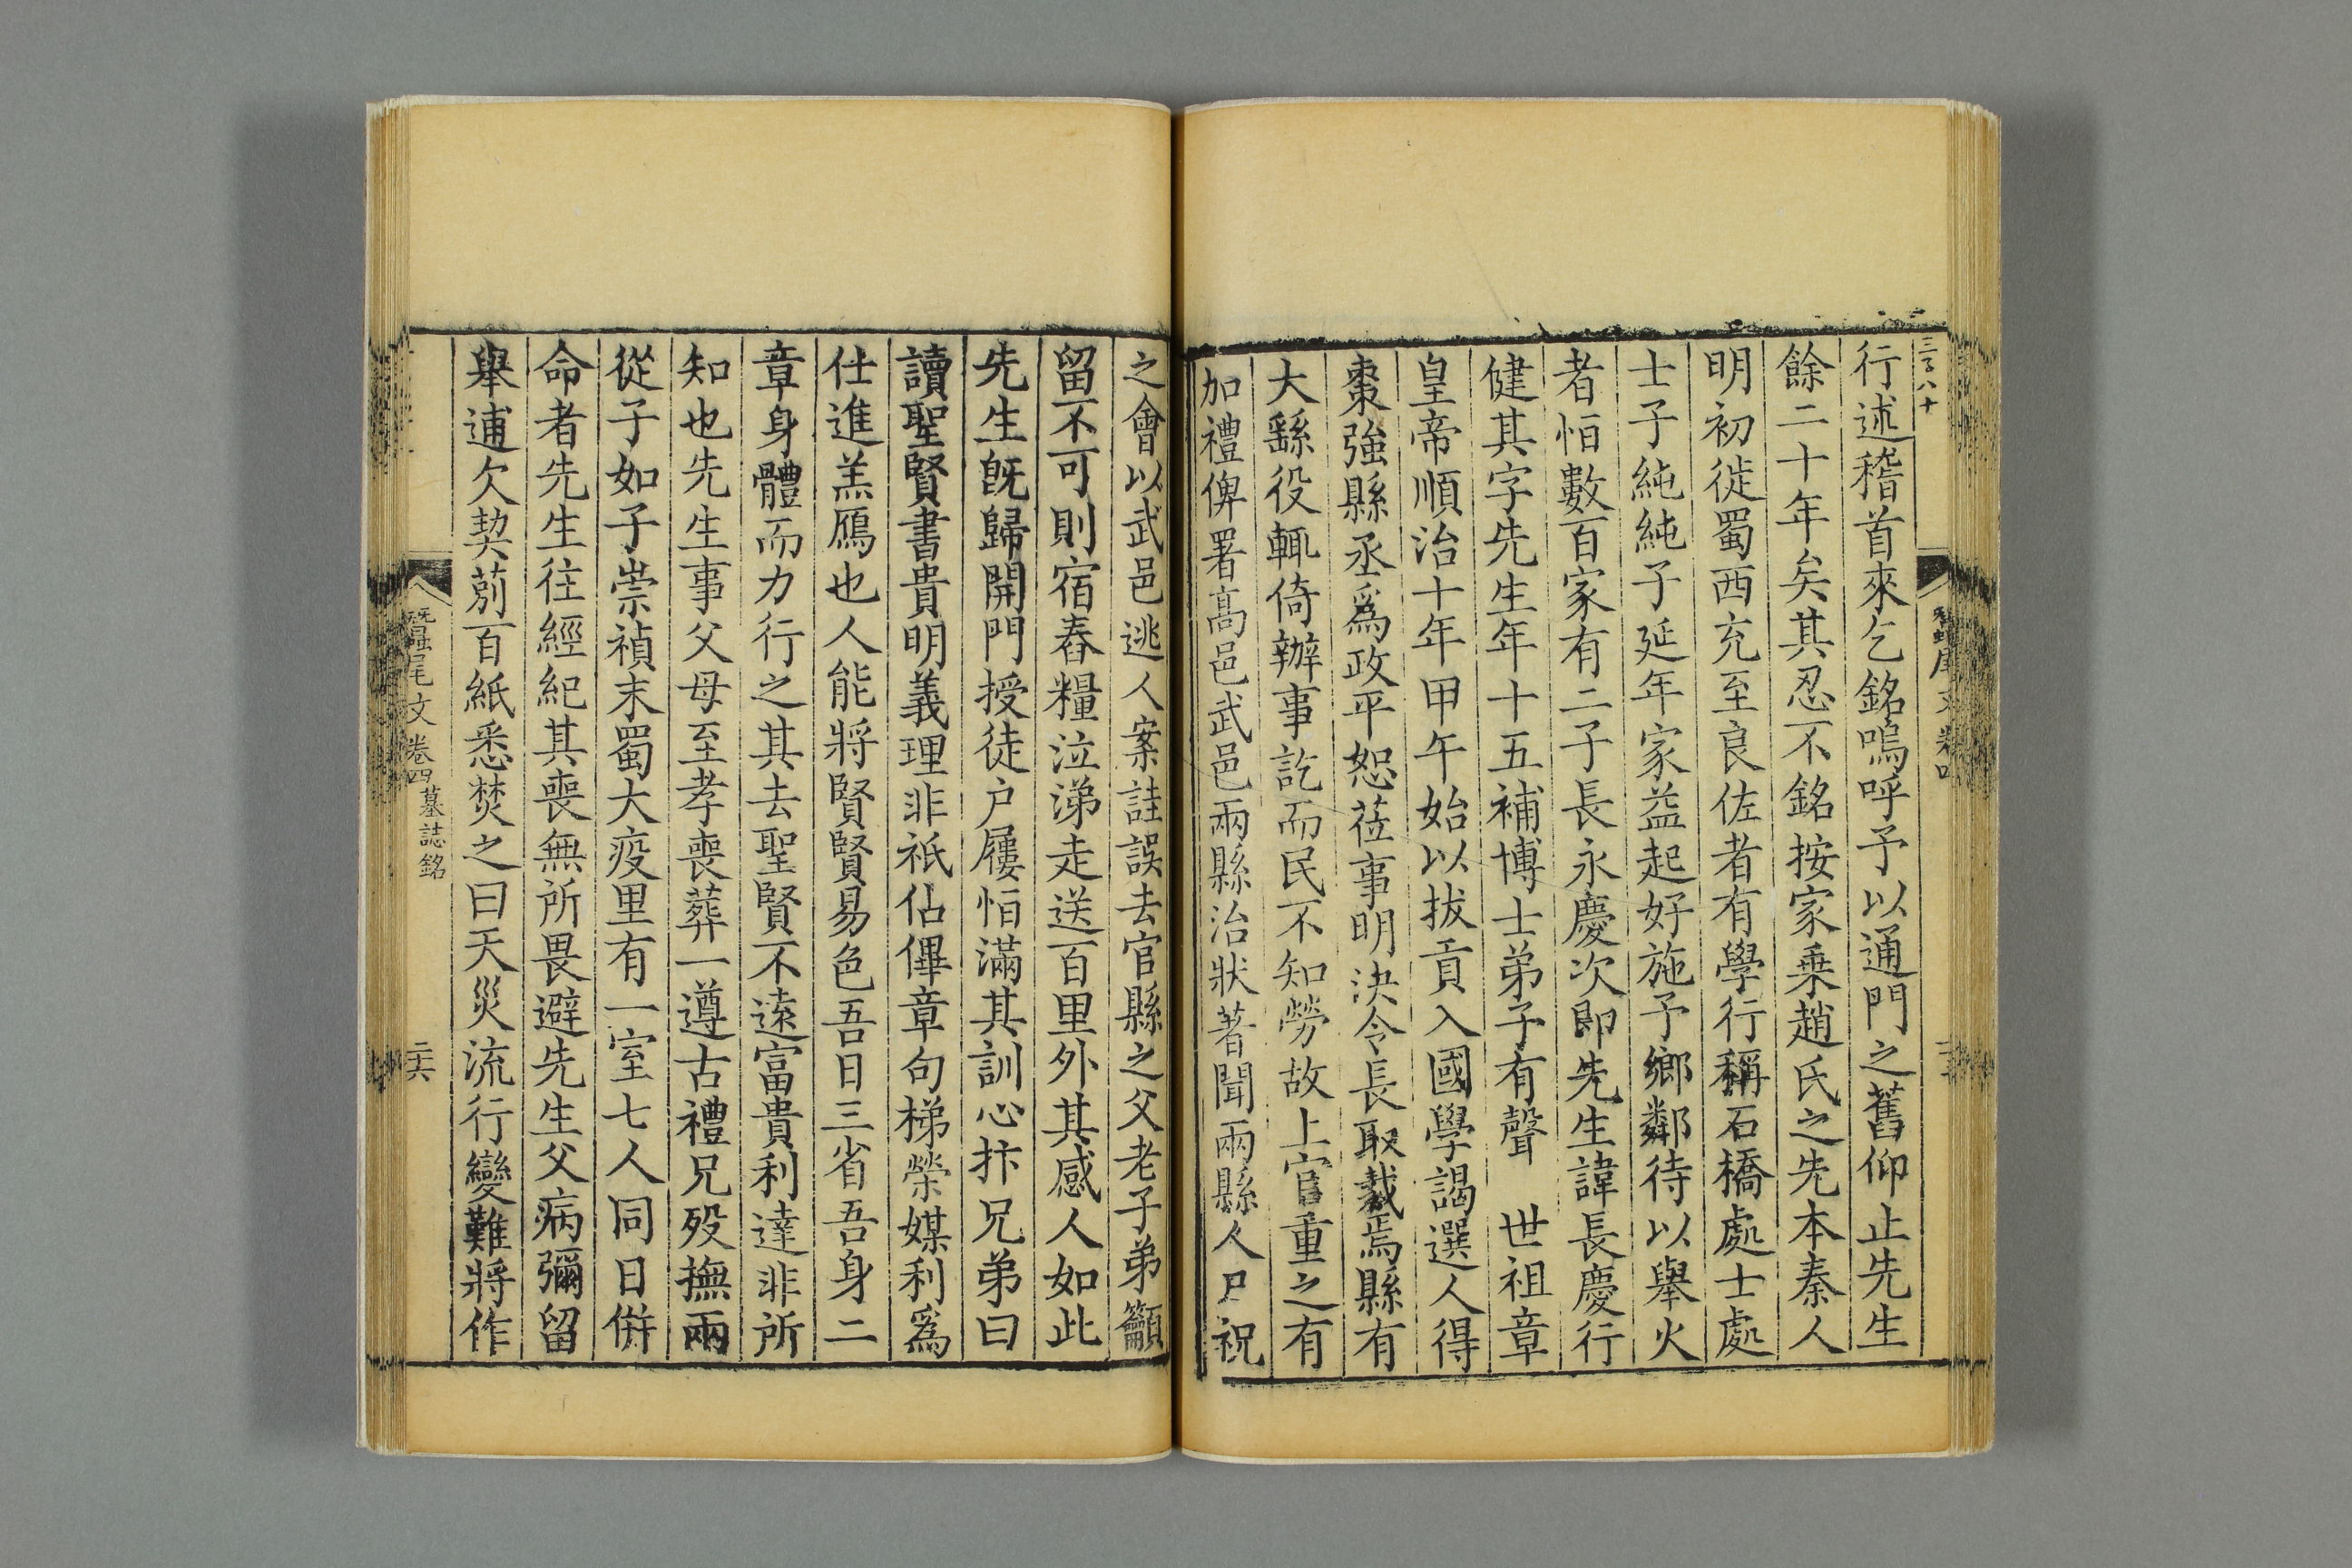 行述稽首來乞銘嗚呼予以通門之舊仰止先生
餘二十年矣其忍不銘按家乗趙氏之先本秦人
明初徙蜀西充至良佐者有學行稱石橋處士處
士子純純子延年家益起好施予鄉鄰待以舉火
者怕數百家有二子長永慶次即先生諱長慶行
健其字先生年十五補博士弟子有聲　世祖章
皇帝順治十年甲午始以拔貢入國學謁選人得
棗強縣丞爲政平恕莅事明決令長取裁焉縣有
大繇役輒倚辦事訖而民不知勞故上官重之有
加禮俾署高邑武邑兩縣治狀著聞兩縣人尸祝
之會以武邑逃人案詿誤去官縣之父老子弟籲
留不可則宿舂糧泣涕走送百里外其感人如此
先生旣歸開門授徒户屨怕滿其訓心抃兄弟曰
讀聖賢書貴明義理非祇佔僤章句梯榮媒利爲
仕進羔鴈也人能將賢賢易色吾日三省吾身二
章身體而力行之其去聖賢不遠富貴利達非所
知也先生事父母至孝喪葬一遵古禮兄殁撫兩
從子如子崇禎末蜀大疫里有一室七人同日併
命者先生往經紀其喪無所畏避先生父病彌留
舉逋欠契莂百紙悉焚之曰天災流行變難將作
蠶尾文　卷四 墓誌銘　二六